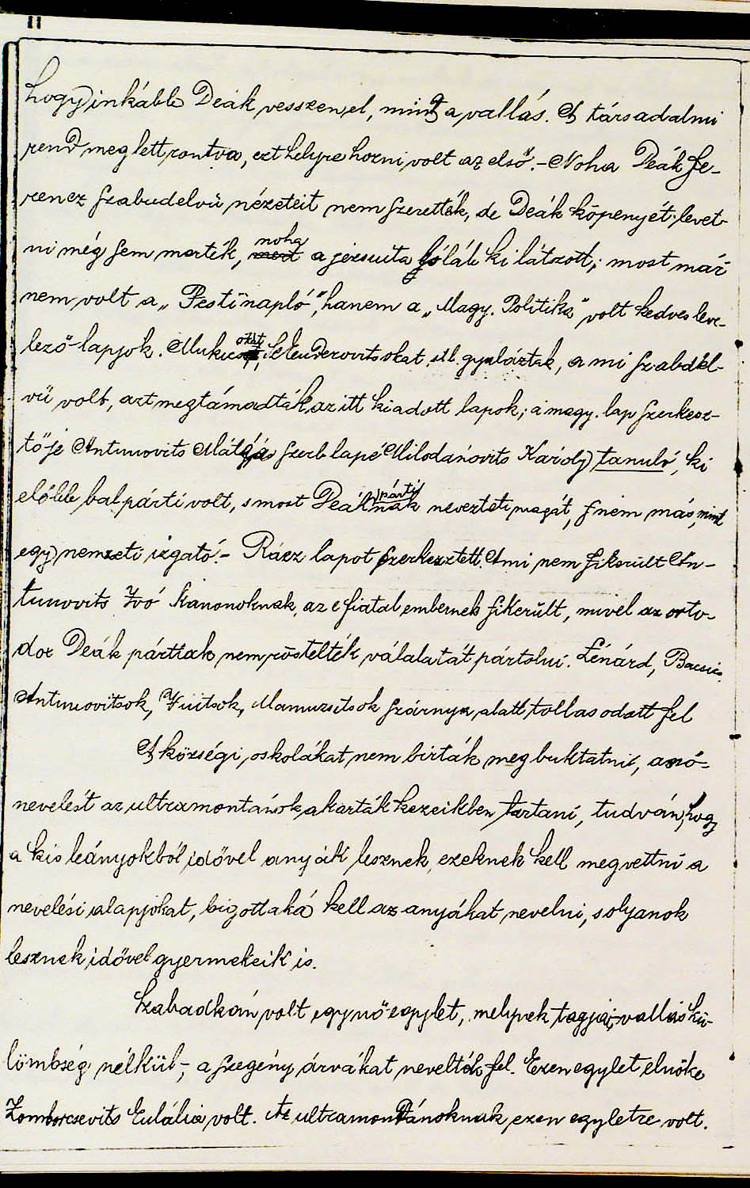 11
hogy inkább Deák vesszen el, mint a vallás. A társadalmi
rend meg lett rontva, ezt helyre hozni volt az első. – Noha Deák Fe-
rencz szabadelvü nézeteit nem szerették, de Deák köpenyét levet-
ni még sem merték, noha a jezsuita lóláb ki látszott; most már
nem volt a „Pesti napló", hanem a „Magy. Politika" volt kedves leve-
lező lapjok. Mukicsot, Seleuderovitsokat, stb. gyalázták, a mi szabadel-
vü volt, azt megtámadták az itt kiadott lapok; a magy. lap szerkesz-
tője Antunovits Mátyás szerb lapé Milodanovits Károly tanuló, ki
előbb balpárti volt, s most Deák pártinak nevezteti magát, s nem más, mint
egy nemzeti izgató. – Rácz lapot szerkesztett. Ami nem sikerült An-
tunovits Ivó kanonoknak, az e fiatal embernek sikerült, mivel az orto-
dox Deák pártiak nem röstelték válalatát pártolni. Lénárd, Bacsics
Antunovitsok, Vuitsok, Mamuzsitsok szárnya alatt tollasodott fel
A községi oskolákat nem birták megbuktatni, a nő-
nevelést az ultramontánok akarták kezeikben tartani, tudván, hogy
a kis leányokból idővel anyák lesznek, ezeknek kell megvettni a
nevelési alapjokat, bigottaká kell az anyákat nevelni, s olyanok
lesznek idővel gyermekeik is.
Szabadkán volt egy nő egylet, melynek tagjai – vallás kü-
lömbség nélkül –, a szegény árvákat nevelték fel. Ezen egylet elnöke
Zomborcsevits Eulália volt. Az ultramontánoknak ezen egyletre volt.